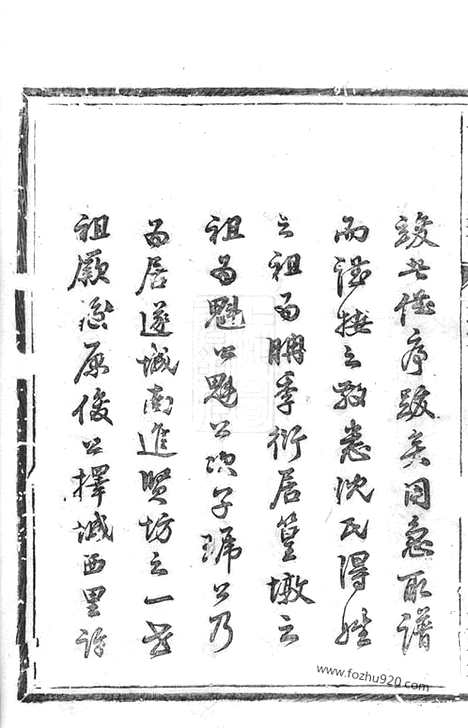 竣此任序跋矣因急取譜
而謹按之敬悉沈氏得姓
之祖為聃季衍居篁墩之
祖為魁公魁公次子琥公乃
為居遂城南進賢坊之一世
祖厥後原俊公擇城西里許
www.fozhu920.com